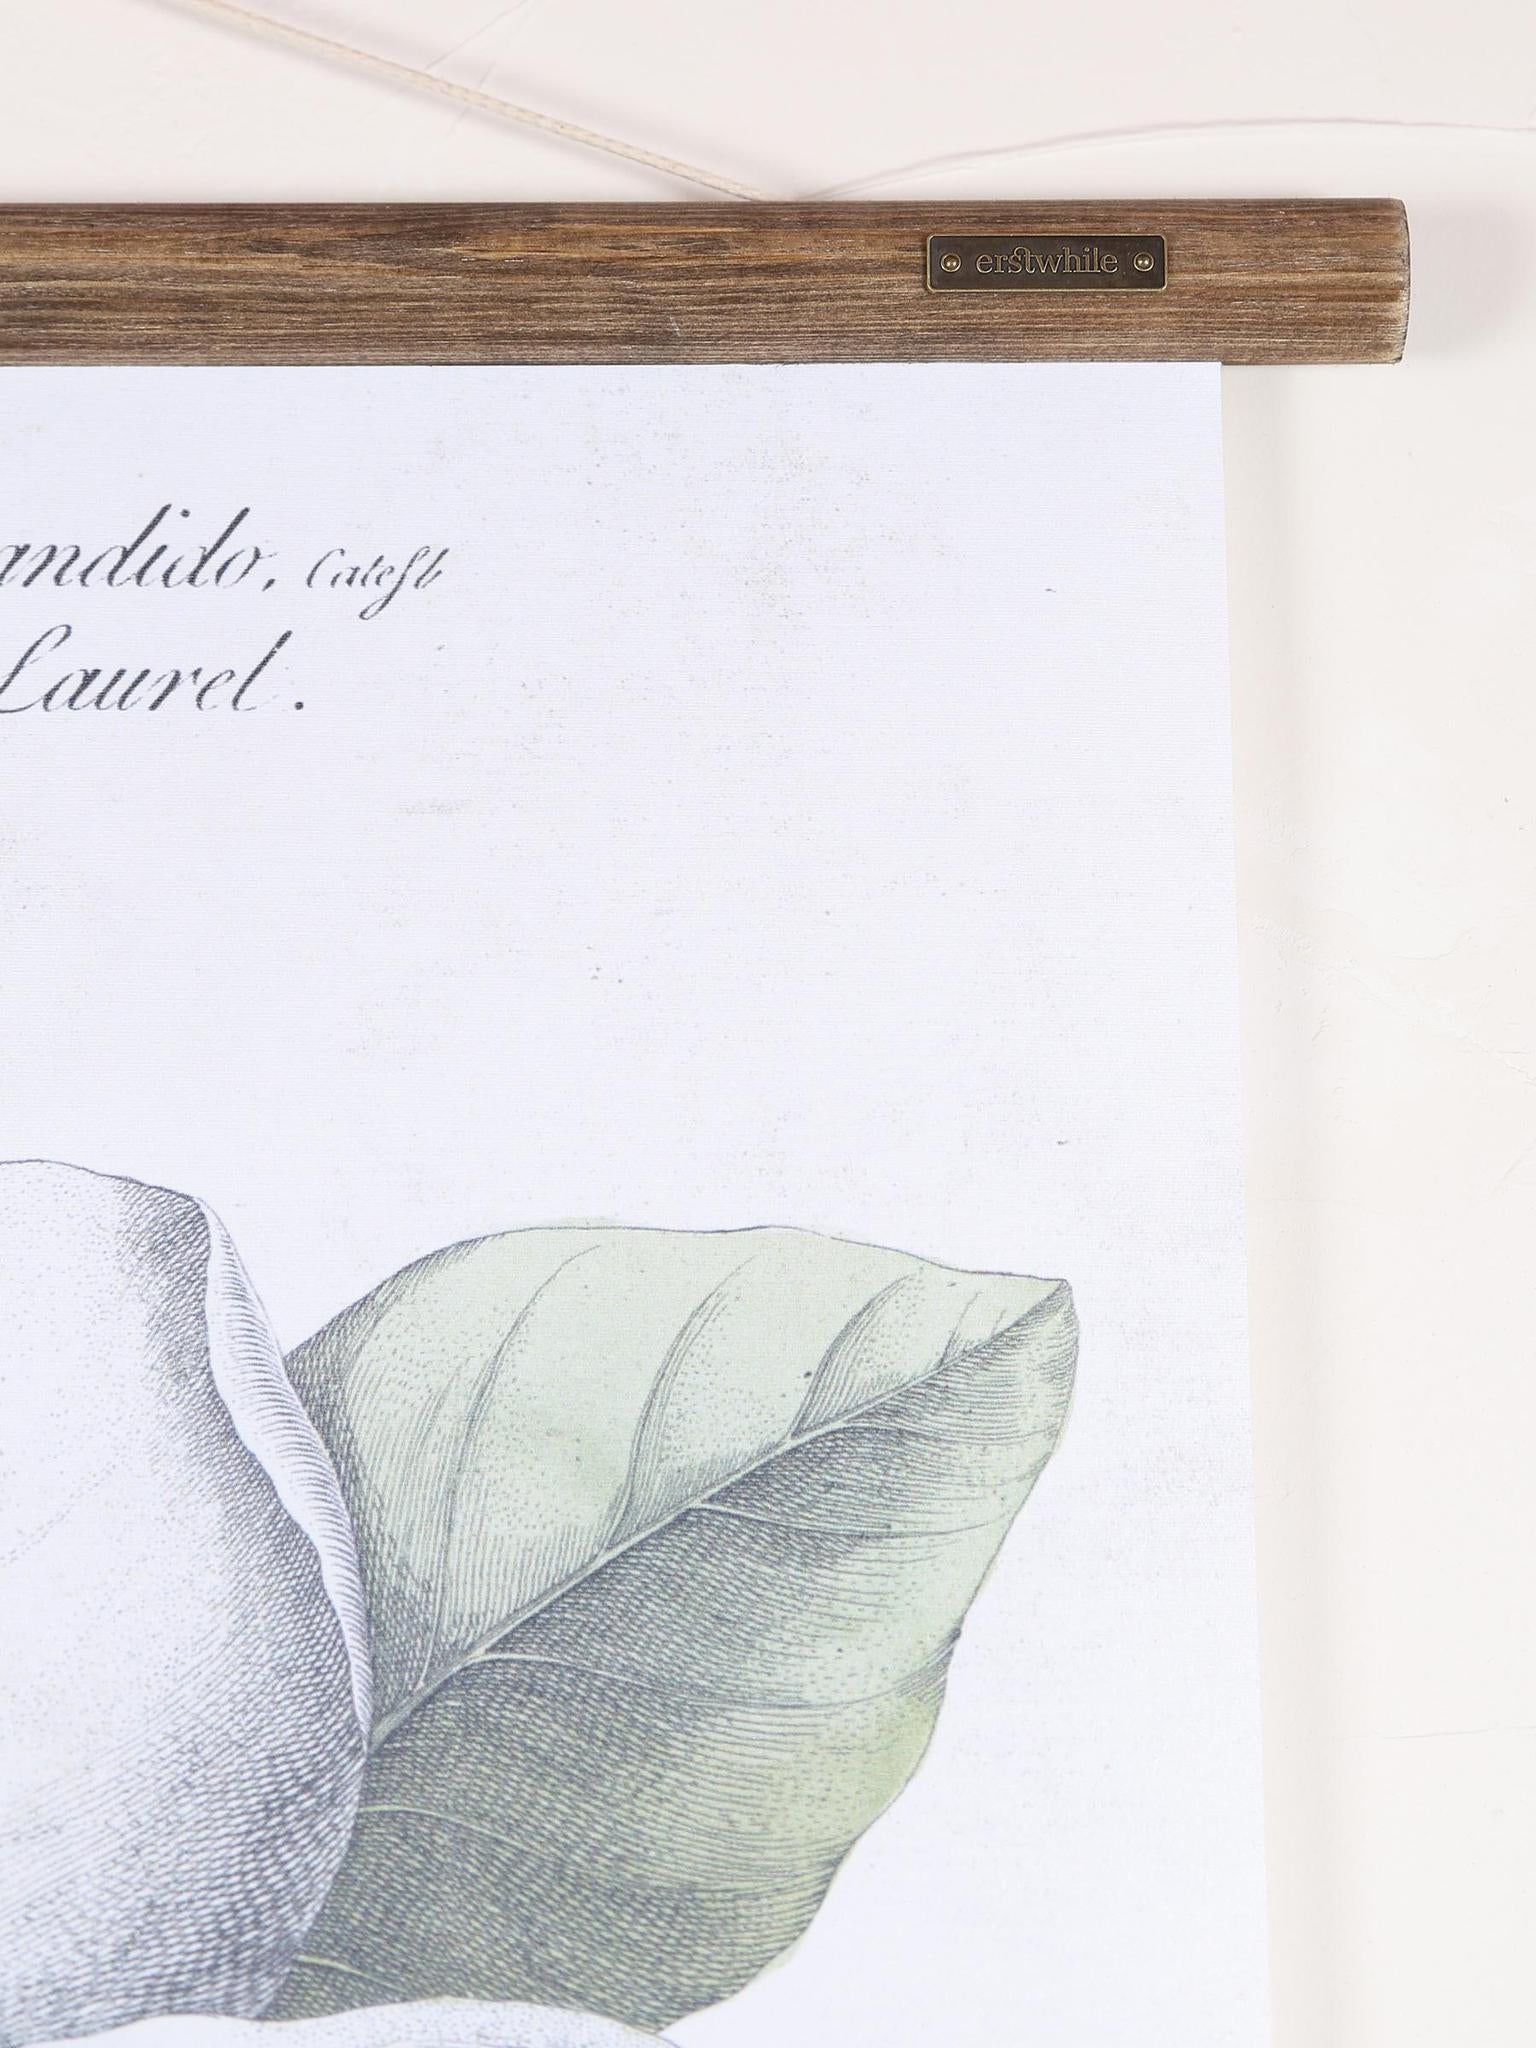 erstwhile
andido, Catesb
Laurel.